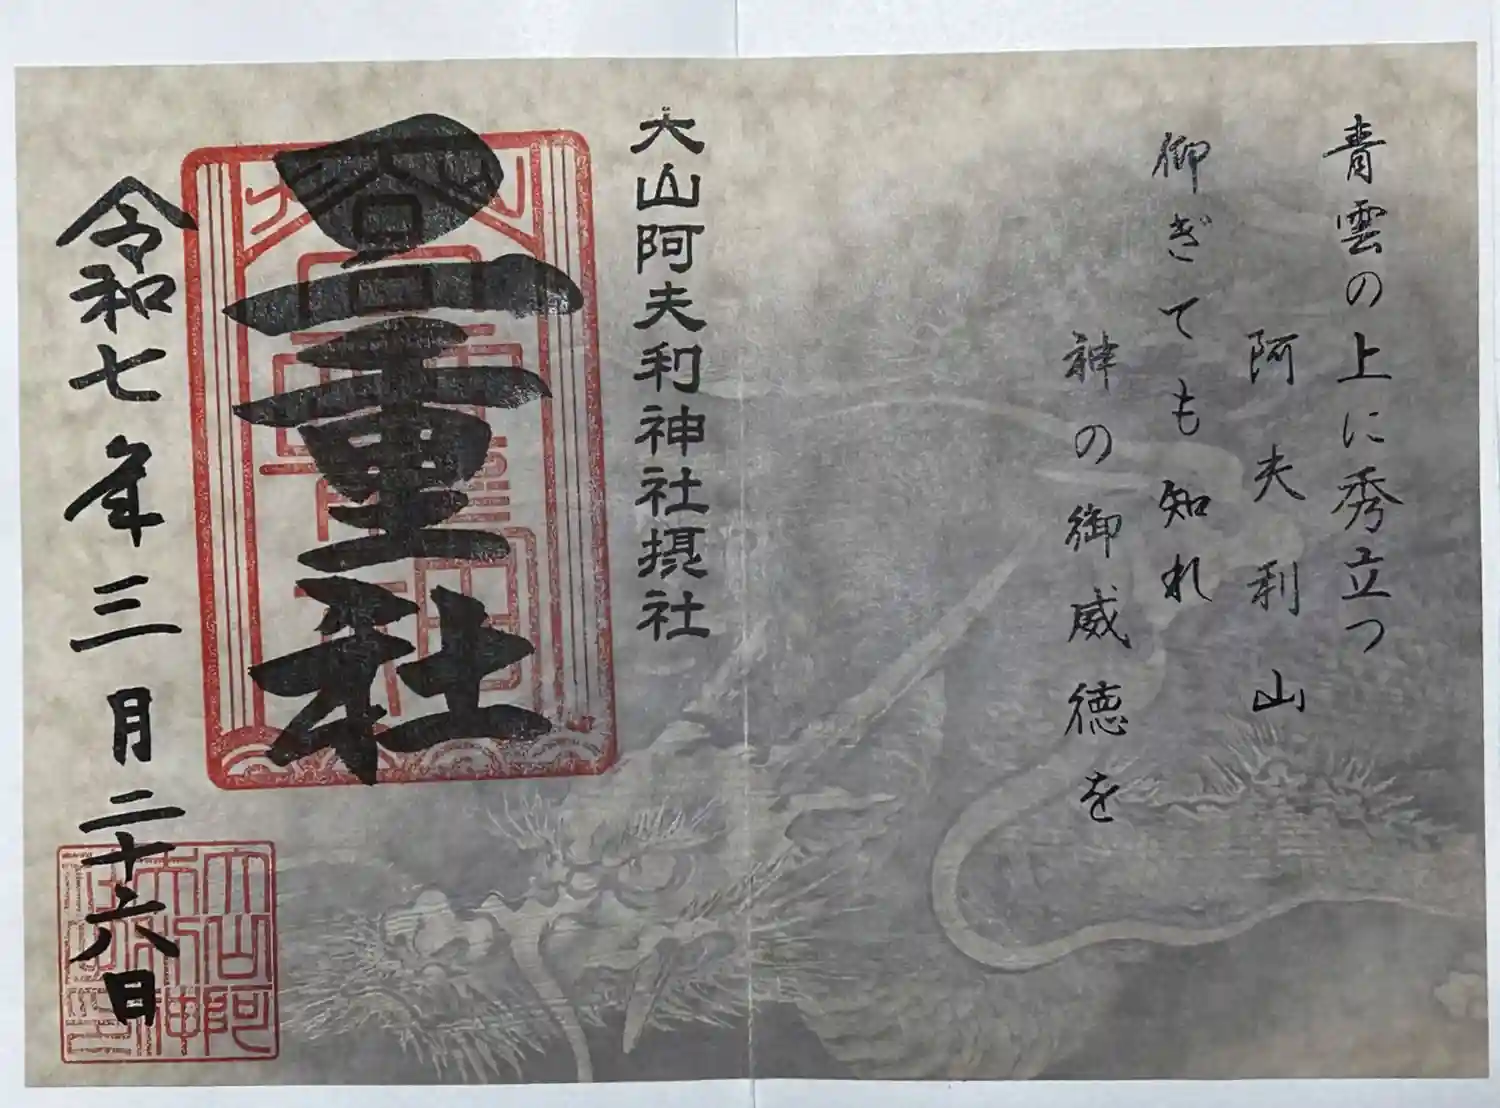 青雲の上に秀立つ
阿夫利山
仰ぎても知れ
神の御威徳を
大山阿夫利神社摂社
二重社
令和七年三月二十六日
大山阿
夫利神